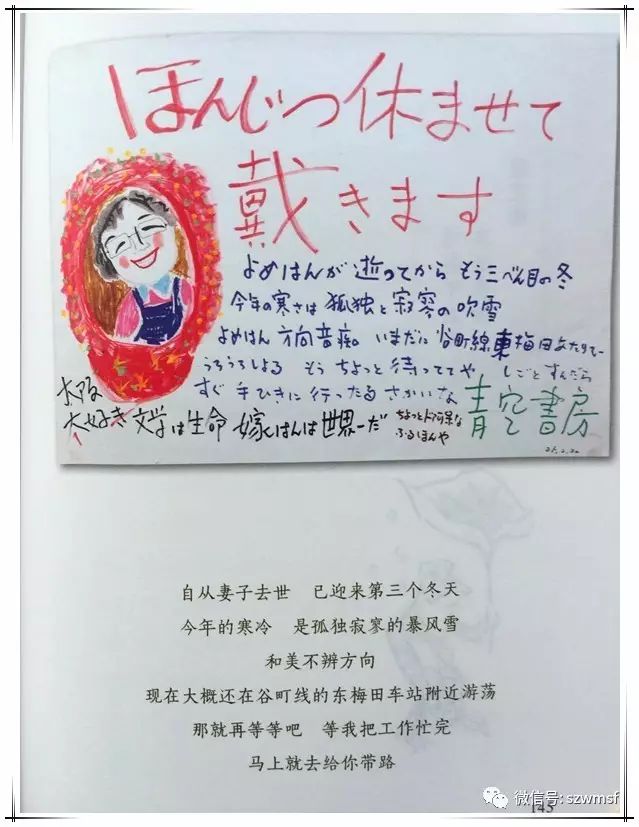 ほんじつ休ませて
戴きます
よめはんが 逝ってから もう三べん目の冬
今年の寒さは 孤独と寂寥の吹雪
よめはん 方向音痴 いまだに 谷町線東梅田あたりで
うろうろしよる もう ちょっと 待っててや しごとすんだら
すぐ 手ひきに行ったるさかいな 青空書房
大阪
大好き 文学は生命 嫁はんは世界一だ ちょっとドアホな
ふるほんや
自从妻子去世 已迎来第三个冬天
今年的寒冷 是孤独寂寥的暴风雪
和美不辨方向
现在大概还在谷町线的东梅田车站附近游荡
那就再等等吧 等我把工作忙完
马上就去给你带路
微信号: szwmsf
145